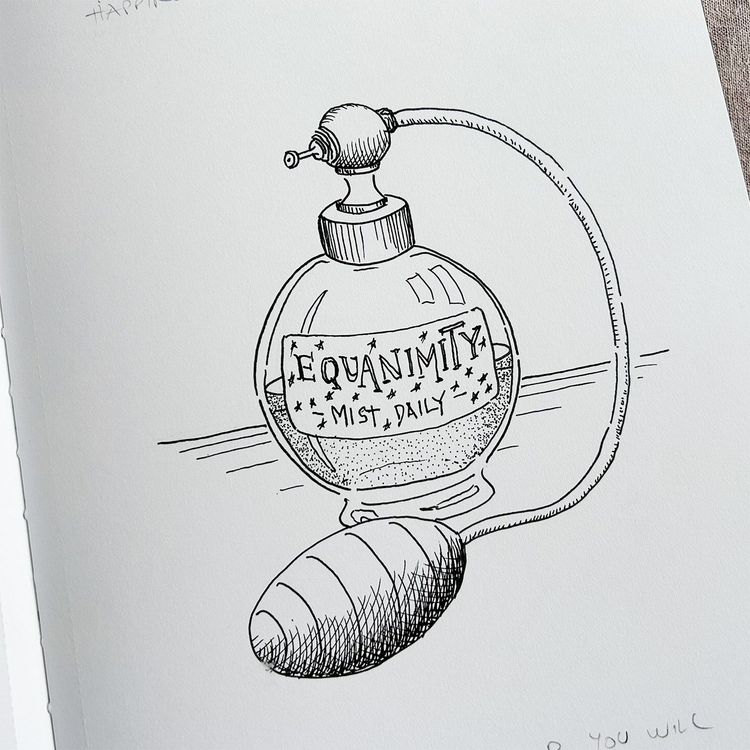 EQUANIMITY
- MIST DAILY -
YOU WILL